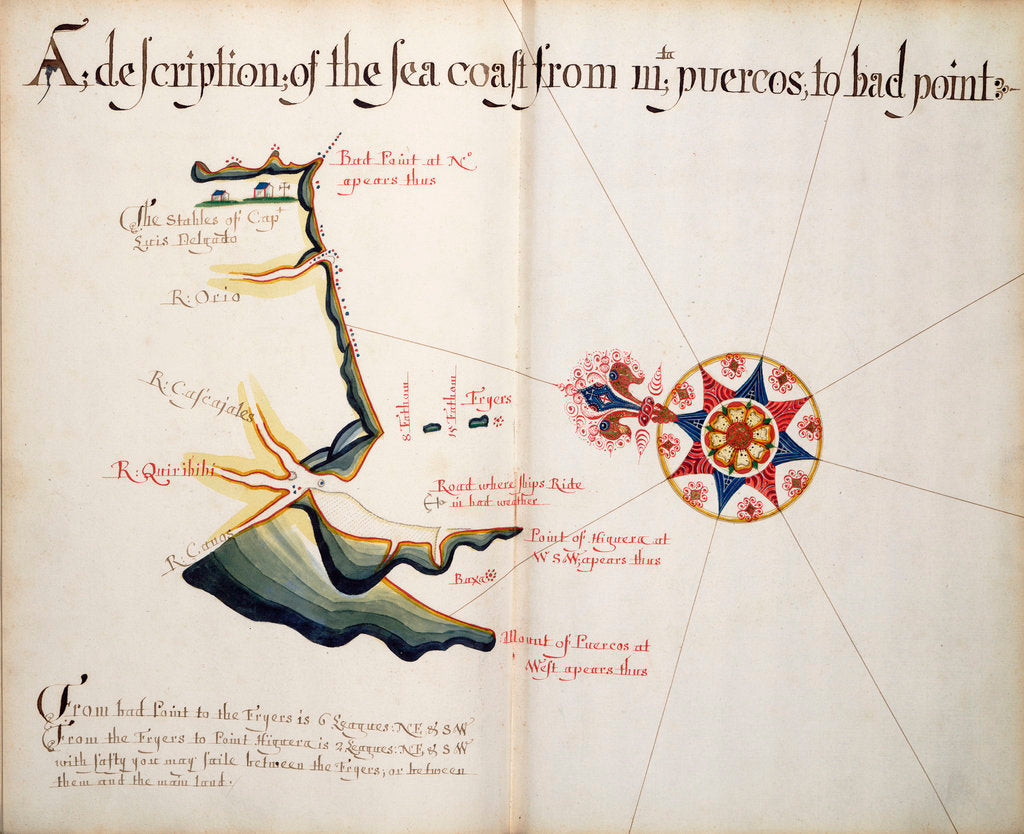 A; deſcription; of the ſea coaſt from mta: puercos; to bad point:
Bad Point at No
apears thus
The Stables of Capt
Luis Delgado
R: Orio
R: Caſcajales
8 Fathom
15 Fathom
Fryers
R: Quiribibi
Road where ſhips Ride
in bad weather
R: Canos
Point of Higuera at
W S W; apears thus
Baxa
Mount of Puercos at
Weſt apears thus
From bad Point to the Fryers is 6 Leagues: NE & SW
From the Fryers to Point Higuera is 2 Leagues: NE, & SW
with ſafty you may ſaile between the Fryers; or between
them and the main land.